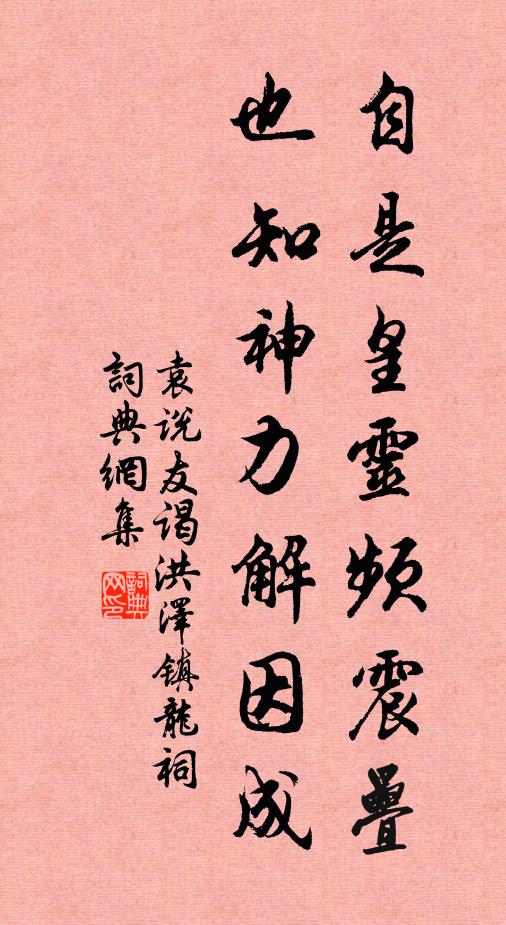 自是皇靈頻震疊
也知神力解因成
袁說友謁洪澤鎮龍祠
詞典網集
詞典网印